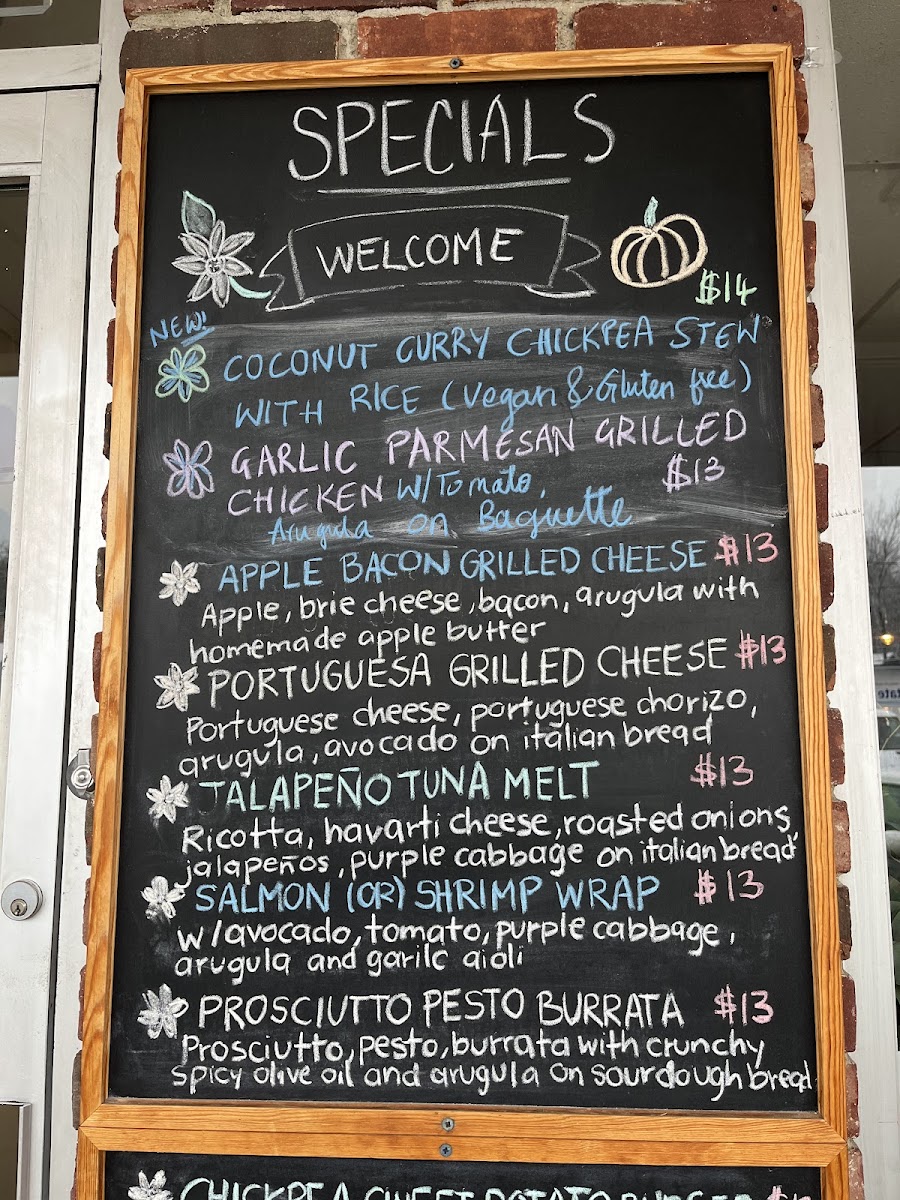 SPECIALS
WELCOME
$14
NEW!
COCONUT CURRY CHICKPEA STEW
WITH RICE (Vegan & Gluten free)
GARLIC PARMESAN GRILLED
CHICKEN W/Tomato, $13
Arugula on Baguette
APPLE BACON GRILLED CHEESE $13
Apple, brie cheese, bacon, arugula with
homemade apple butter
PORTUGUESA GRILLED CHEESE $13
Portuguese cheese, portuguese chorizo,
arugula, avocado on italian bread
JALAPEÑO TUNA MELT $13
Ricotta, havarti cheese, roasted onions,
jalapeños, purple cabbage on italian bread
SALMON (OR) SHRIMP WRAP $13
w/avocado, tomato, purple cabbage,
arugula and garilc aioli
PROSCIUTTO PESTO BURRATA $13
Prosciutto, pesto, burrata with crunchy
spicy olive oil and arugula on sourdough bread
CHICKPEA SWEET POTATO